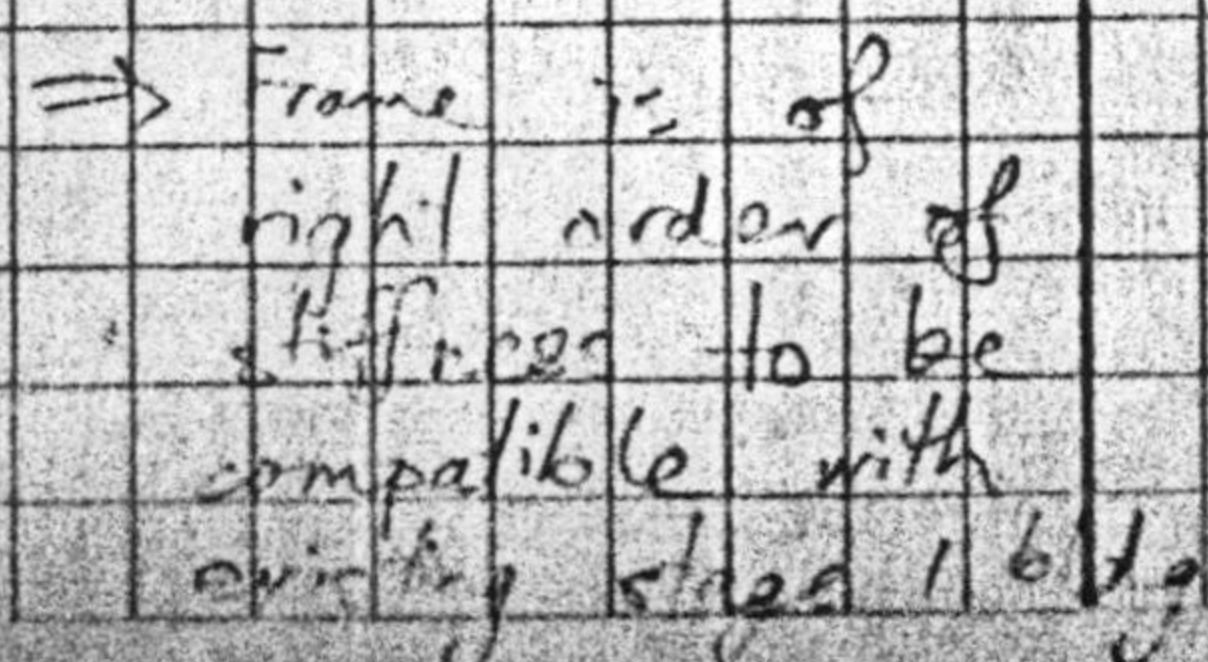 ⇒ Frame is of
right order of
stiffness to be
compatible with
existing stage 1 bldg